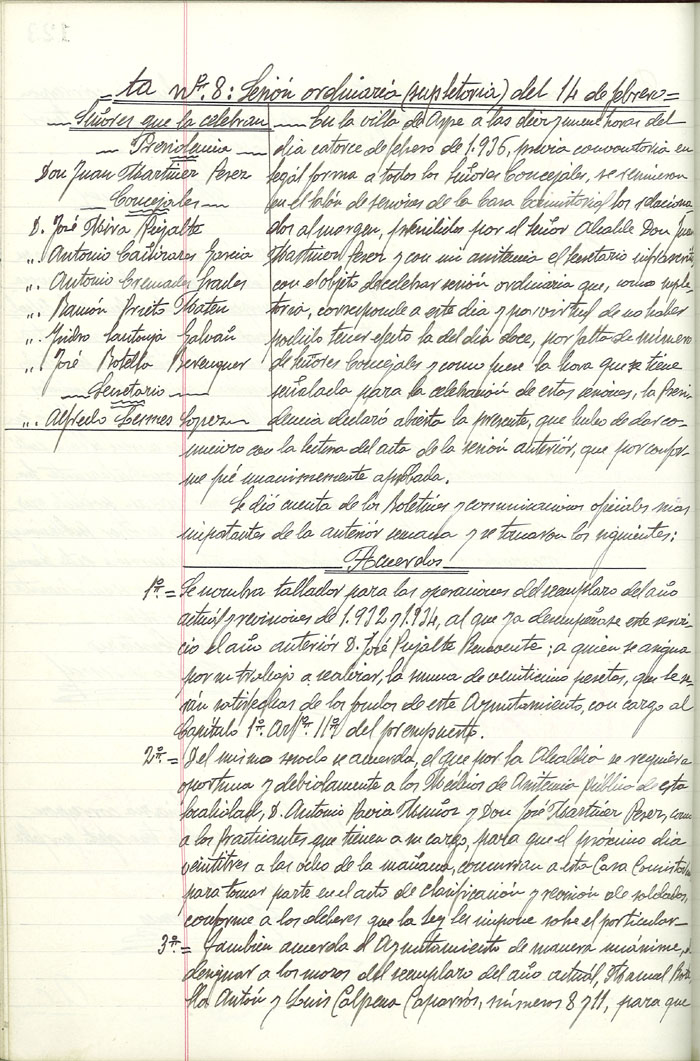 ta nº. 8: Sesión ordinaria (supletoria) del 14 de febrero=
Señores que la celebran
Presidencia
Don Juan Martínez Perez
Concejales
D. José Mira Pujalte
„. Antonio Cañizares Garcia
„. Antonio Cremades Grades
„. Ramón Prieto Mateu
„. Isidro Santonja Galvañ
„. José Botella Berenguer
Secretario
„. Alfredo Lermes Lopez
En la villa de Aspe a las diez y nueve horas del
dia catorce de febrero de 1.936, previa convocatoria en
legal forma a todos los Señores Concejales, se reunieron
en el Salón de sesiones de la Casa Consistorial los relaciona-
dos al margen, presididos por el Señor Alcalde Don Juan
Martinez Perez y con mi asistencia el Secretario infrascrito
con el objeto de celebrar sesión ordinaria que, como suple-
toria, corresponde a este dia y por virtud de no haber
podido tener efecto la del dia doce, por falta de número
de Señores Concejales y como fuese la hora que se tiene
señalada para la celebración de estas sesiones, la Presi-
dencia declaró abierta la presente, que hubo de dar co-
mienzo con la lectura del acta de la sesión anterior, que por confor-
me fué unanimemente aprobada.
Se dió cuenta de los Boletines y comunicaciones oficiales mas
importantes de la anterior semana y se tomaron los siguientes:
Acuerdos
1º.= Se nombra tallador para las operaciones del reemplazo del año
actual y revisiones de 1.932 y 1.934, al que ya desempeñase este servi-
cio el año anterior D. José Pujalte Benavente; a quien se asigna
por su trabajo a realizar, la suma de veinticinco pesetas, que le se-
rán satisfechas de los fondos de este Ayuntamiento, con cargo al
Capítulo 1º. Artº. 11º del presupuesto.
2º.= Del mismo modo se acuerda, el que por la Alcaldia se requiera
oportuna y debidamente a los Médicos de Asistencia Pública de esta
localidad, D. Antonio Pavia Muñoz y Don José Martínez Perez, como
a los practicantes que tienen a su cargo, para que el próximo dia
veintitres a las ocho de la mañana, concurran a esta Casa Consistorial
para tomar parte en el acto de clasificación y revisión de soldados,
conforme a los deberes que la ley les impone sobre el particular
3º.= Tambien acuerda el Ayuntamiento de manera unánime,
designar a los mozos del reemplazo del año actual, Manuel
Antón y Luis Calpena Caparrós, números 8 y 11, para que